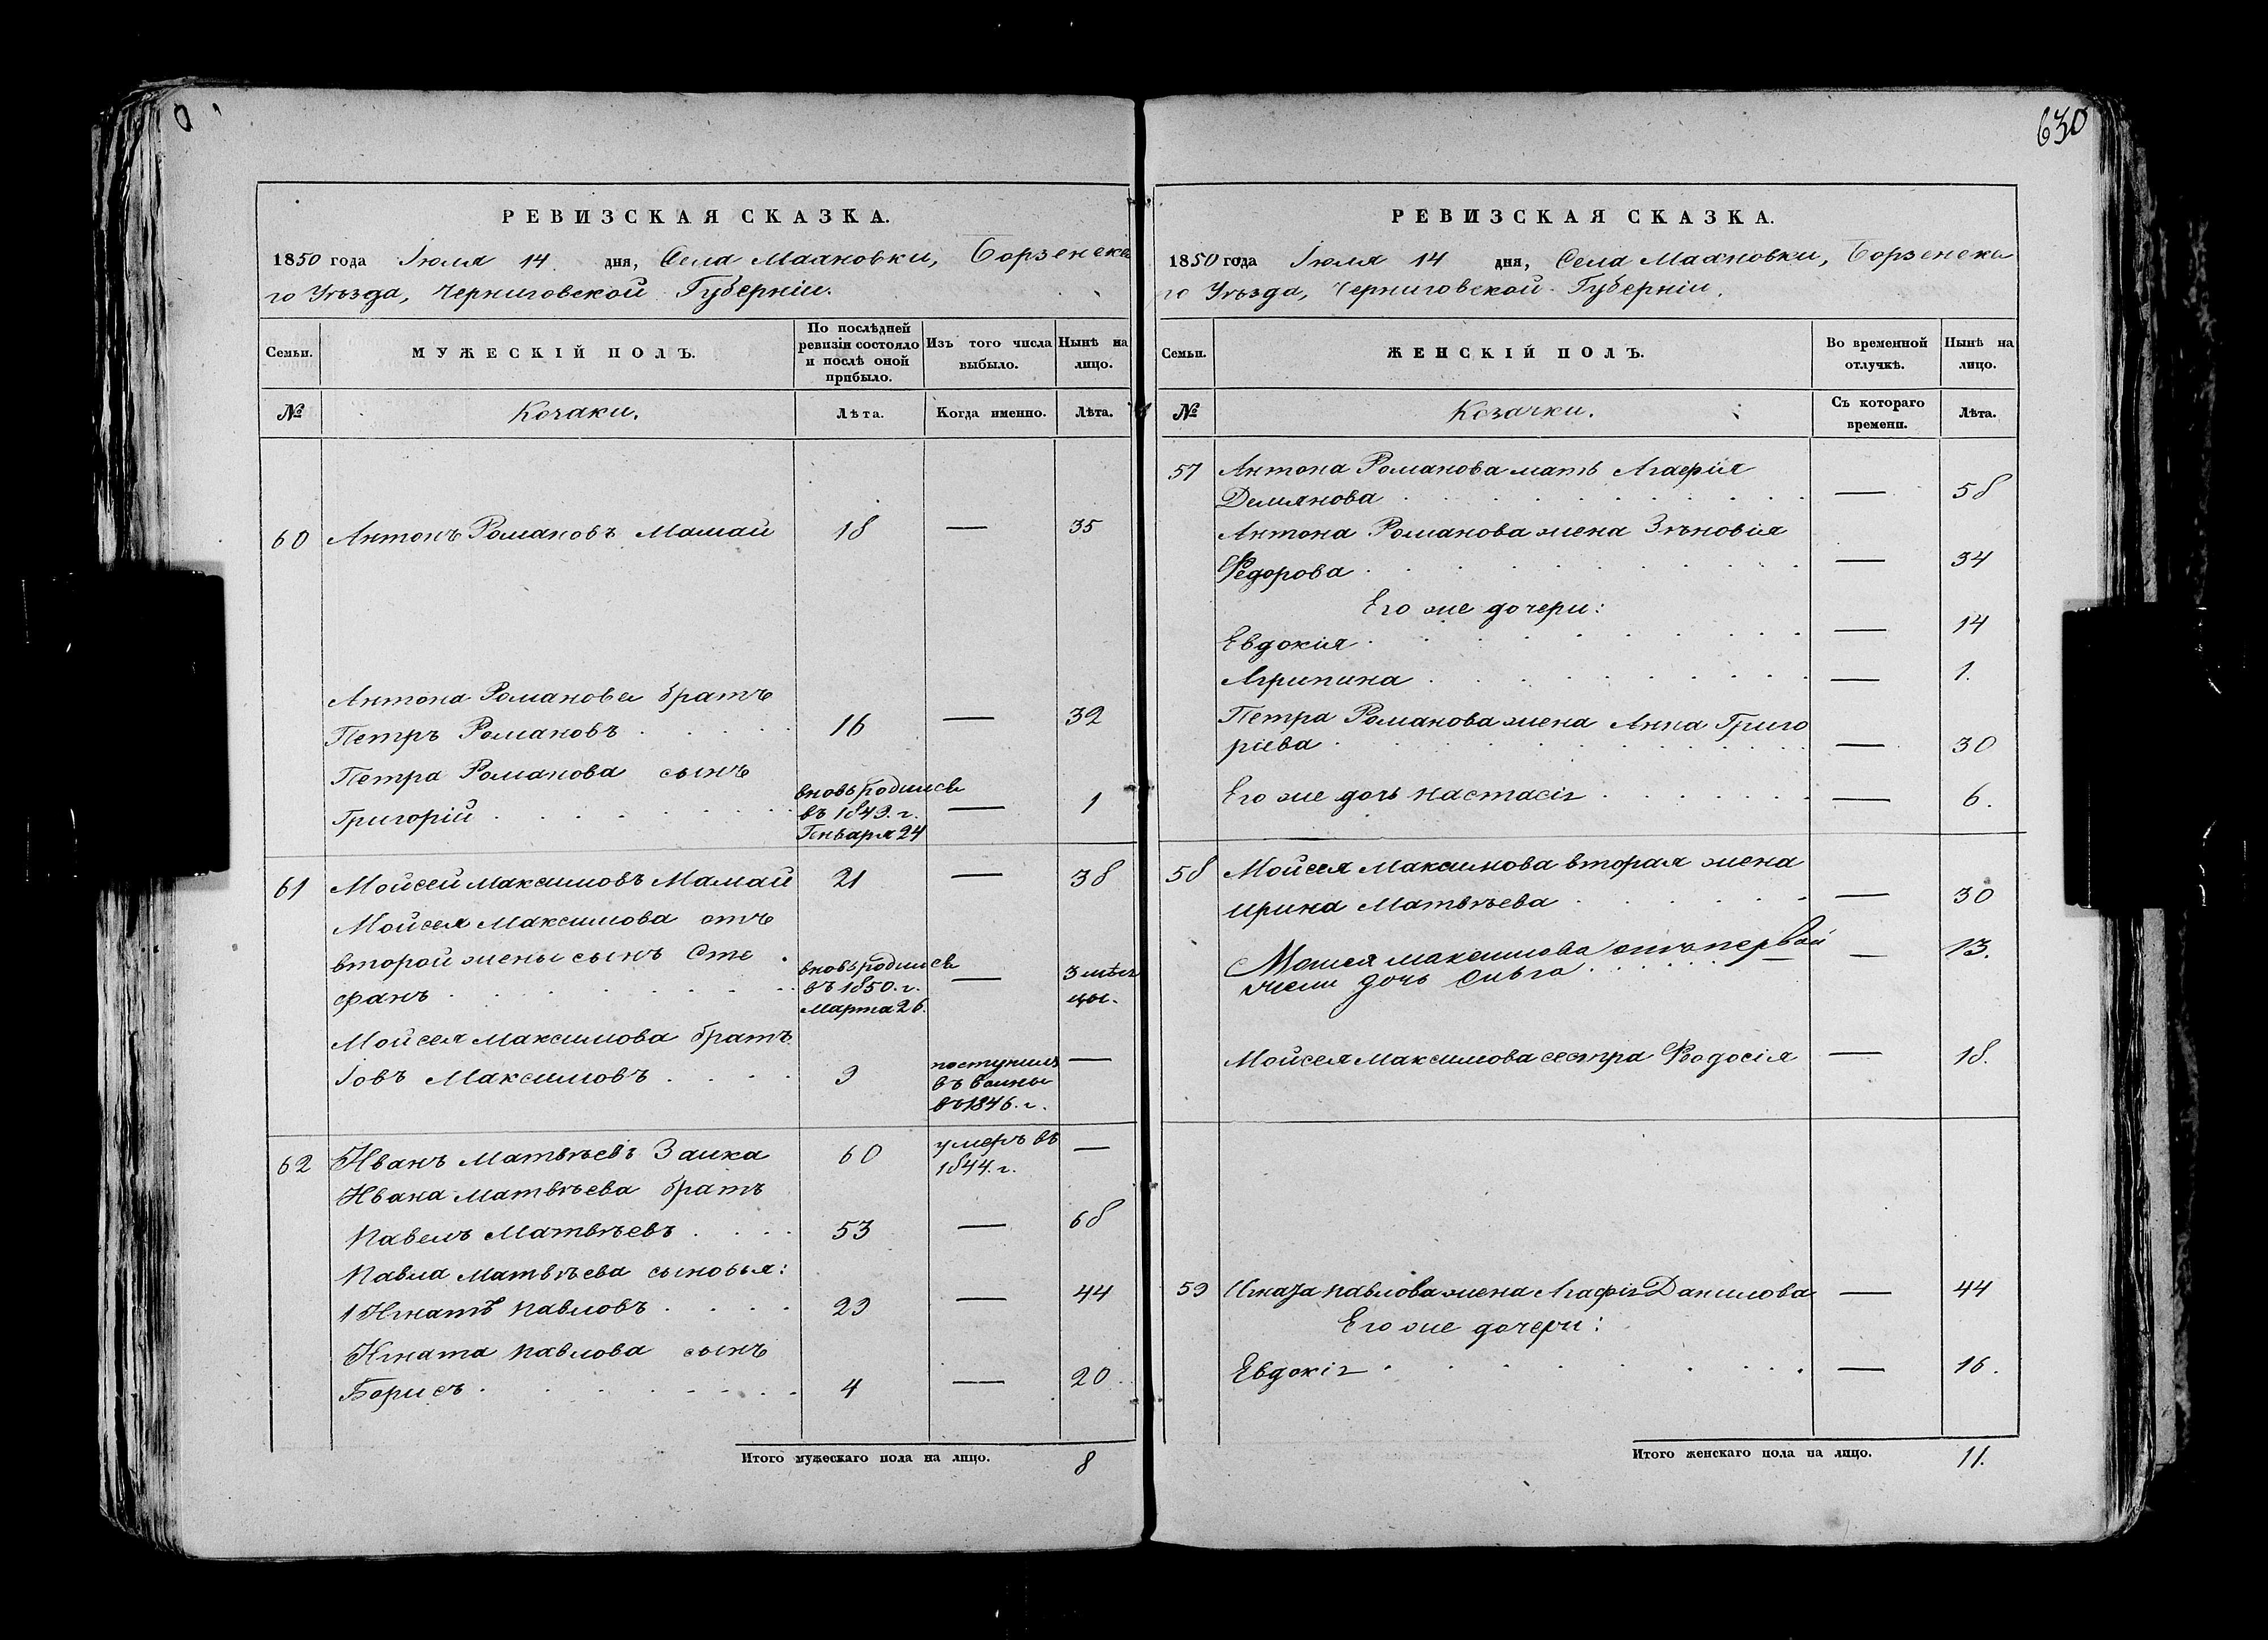 630
РЕВИЗСКАЯ СКАЗКА.
1850 года Іюля 14 дня, Села Малновки, Борзенска
го Уѣзда, Черниговской Губерніи.
Семьи.
МУЖЕСКІЙ ПОЛЪ.
По послѣдней
ревизіи состояло
и послѣ оной
прибыло.
Изъ того числа
выбыло.
Нынѣ на
лицо.
№
Козаки.
Лѣта.
Когда именно.
Лѣта.
60 Антонъ Романовъ Мамай 18 — 35
Антона Романова братъ
Петръ Романовъ . . . . . 16 — 32
Петра Романова сынъ
Григорій . . . . . . .
вновь родился
въ 1849. г.
Генваря 24
— 1
61 Мойсей Максимовъ Мамай 21 — 38
Мойсея Максимова отъ
второй жены сынъ Сте
фанъ . . . . . . . .
вновь родился
въ 1850. г.
Марта 26.
—
3 мѣся
цы.
Мойсея Максимова братъ
Іовъ Максимовъ . . . . 9
поступилъ
въ воины
въ 1846. г.
—
62 Иванъ Матвѣевъ Заика 60
умеръ въ
1844. г.
—
Ивана Матвѣева братъ
Павелъ Матвѣевъ . . . . 53 — 68
Павла Матвѣева сыновья:
1 Игнатъ Павловъ . . . . 29 — 44
Игната Павлова сынъ
Борисъ . . . . . . . . 4 — 20
Итого мужескаго пола на лицо. 8
РЕВИЗСКАЯ СКАЗКА.
1850 года Іюля 14 дня, Села Малновки, Борзенска
го Уѣзда, Черниговской Губерніи.
Семьи.
ЖЕНСКІЙ ПОЛЪ.
Во временной
отлучкѣ.
Нынѣ на
лицо.
№
Козачки.
Съ котораго
времени.
Лѣта.
57 Антона Романова мать Агафія
Демянова . . . . . . . . . — 58
Антона Романова жена Зѣновія
Федорова . . . . . . . . . — 34
Его же дочери:
Евдокія . . . . . . . . . — 14
Агрипина . . . . . . . . . — 1.
Петра Романова жена Анна Григо
ріева . . . . . . . . . — 30
Его же дочь Настасія . . . . . . — 6.
58 Мойсея Максимова вторая жена
Ирина Матвѣева . . . . . . — 30
Моисея Максимова отъ первой
жени дочь Ольга . . . . . . — 13.
Мойсея Максимова сестра Феодосія — 18.
59 Игната Павлова жена Агафія Данилова — 44
Его же дочери:
Евдокія . . . . . . . . — 16.
Итого женскаго пола на лицо. 11.